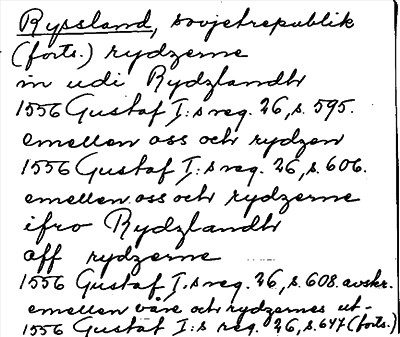 Ryssland, sovjetrepublik
(forts.) rydzerne
in udi Rydzlandh
1556 Gustaf I:s reg. 26, s. 595.
emellen oss och rydzen
1556 Gustaf I:s reg. 26, s. 606.
emellen oss och rydzerne
ifro Rydzlandh
aff rydzerne
1556 Gustaf I.s reg. 26, s. 608. avskr.
emellen våre och rydzernes ut-
1556 Gustaf I:s reg. 26, s. 647 (forts.)